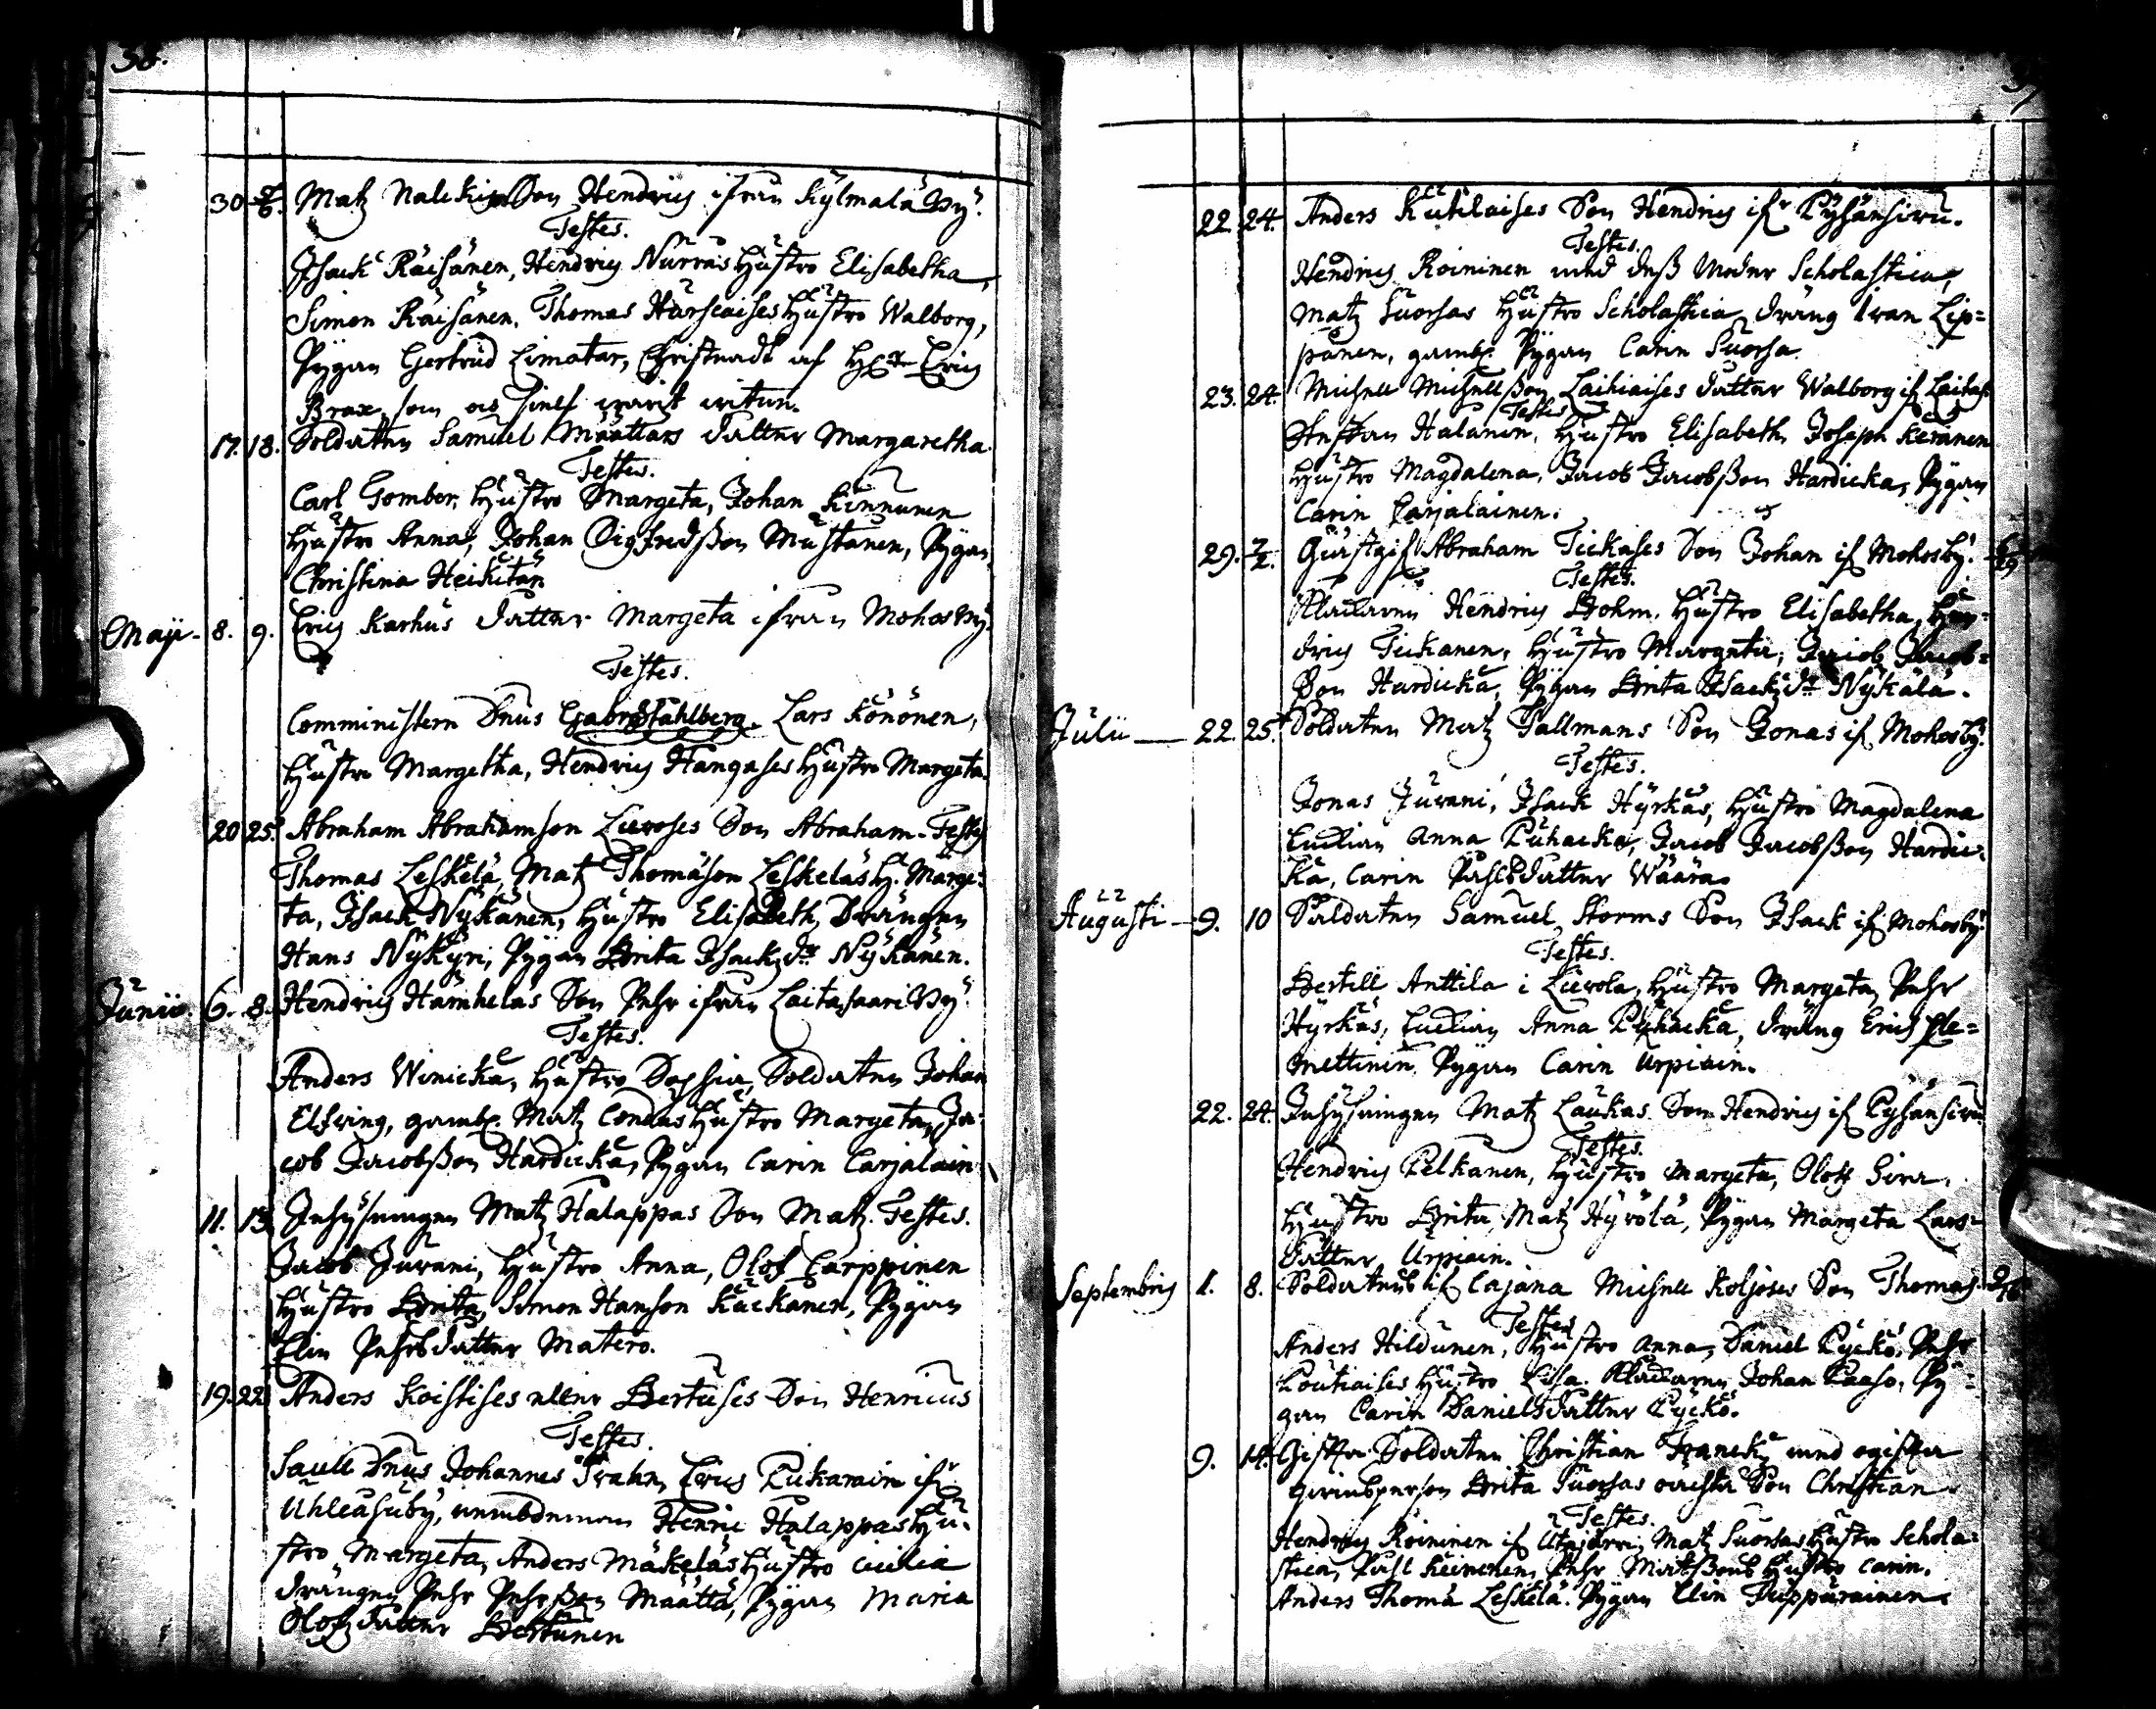 38.
30 Matz Nalckis Son Hendrich ifrån Kylmälä By.
Testes.
Isack Räisänen, Hendrich Nurras Hustro Elisabetha,
Simon Räisänen, Thomas Härkaises Hustro Walborg,
Pygan Gertrud Limatar, Christnadt af H Erich
Brax, som
17. 18. Soldaten Samuel Määttäs datter Margaretha.
Testes.
Carl Gomber, Hustro Margeta, Johan Kinnunen
Hustro Anna, Johan Sigfredßon Mustanen, Pygan
Christina Heikitän
Maji - 8. 9. Erich Karhus datter Margeta ifrån Mohosby.
Testes.
Comministern Dnus Gabr Ståhlberg. Lars Könönen,
Hustro Margetha, Hendrich Hangases Hustro Margeta.
20 25. Abraham Abrahamson Liuroses Son Abraham. Testes
Thomas Leskelä, Matz Thomäson Leskeläs H. Marge=
ta, Isack Nykänen, Hustro Elisabeth, Drängen
Hans Nykyri, Pygan Brita Isackz dr Nykänen.
Junii. 6. 8. Hendrich Hämheläs Son Pehr ifrån Laitasaari By.
Testes.
Anders Winicka, Hustro Sophia, Soldaten Johan
Elfving, gamb. Matz Condas Hustro Margeta, Ja=
cob Jacobßon Hardicka, Pygan Carin Carjalain
11. 13. Inhysningen Matz Halappas Son Matz. Testes.
Jacob Juvani, Hustro Anna, Olof Carppinen
Hustro Brita, Simon Hanson Kackanen, Pygan
Elin Pehrsdatter Matero.
19. 22. Anders Koistises eller Bertuses Son Henricus
Testes.
Saull Dnus Johannes Frahn, Erich Pukarain ifr
Uhleåsuby, Henric Halappas Hu=
stro Margeta, Anders Mäkeläs Hustro Cicilia
drängen Pehr Pehrßon Määttä, Pygan Maria
Olofz datter Bertunen
22. 24. Anders Kutilaises Son Hendrich ifr Pyhänsivu.
Testes.
Hendrich Roininen med deß Moder Scholastica,
Matz Suorsas Hustro Scholastica, dräng Ivan Lip=
pänen, gamb. Pygan Carin Suorsa.
23. 24. Michell Michellßon Laihiaises datter Walborg if Laitas.
Testes
Staffan Halanen, Hustro Elisabeth, Joseph Keränen
Hustro Magdalena, Jacob Jacobßon Hardicka, Pygan
Carin Carjalainen.
29. Abraham Tickases Son Johan if Mohosby.
Testes.
Hendrich Bohm. Hustro Elisabetha, Hen=
drich Tickanen, Hustro Margeta, Jacob Jacob=
Son Hardicka, Pygan Brita Isackz dr Nykälä.
Julii — 22. 25. Soldaten Matz Tallmans Son Jonas if Mohosby.
Testes.
Jonas Juvani, Isack Hyrkäs, Hustro Magdalena
Anna Puhacka, Jacob Jacobßon Hardic=
ka, Carin Påhlsdatter Wäära.
Augusti - 9. 10 Soldaten Samuel Storms Son Isack if Mohosby.
Testes.
Bertill Anttila i Liurola, Hustro Margeta, Pehr
Hyrkäs, Anna Puhacka, dräng Erich Kle=
mettinen. Pygan Carin Urpiain.
22. 24. Inhysningen Matz Laukas Son Hendrich if Pyhänsivu.
Testes.
Hendrich Pelkanen, Hustro Margeta, Olof Sira,
Hustro Brita, Matz Hyrölä, Pygan Margeta Lars=
datter Urpiain.
Septembris 1. 8. if Cajana Michell Koljoses Son Thomas.
Testes
Anders Hildunen, Hustro Anna, Daniel Pyckö, Pehr
Poutiaises Hustro Lisa. Johan Paaso, Py=
gan Carin Danielsdatter Pyckö.
9. 14. Gifta Soldaten Christian med ogifta
Brita Suorsas Son Christian
Testes.
Hendrich Roininen if Utajärvi, Matz Suorsas Hustro Schola=
stica, Påhl Keinenen, Pehr Matßons Hustro Carin.
Anders Thomä Leskelä. Pygan Elin Tuppurainen.